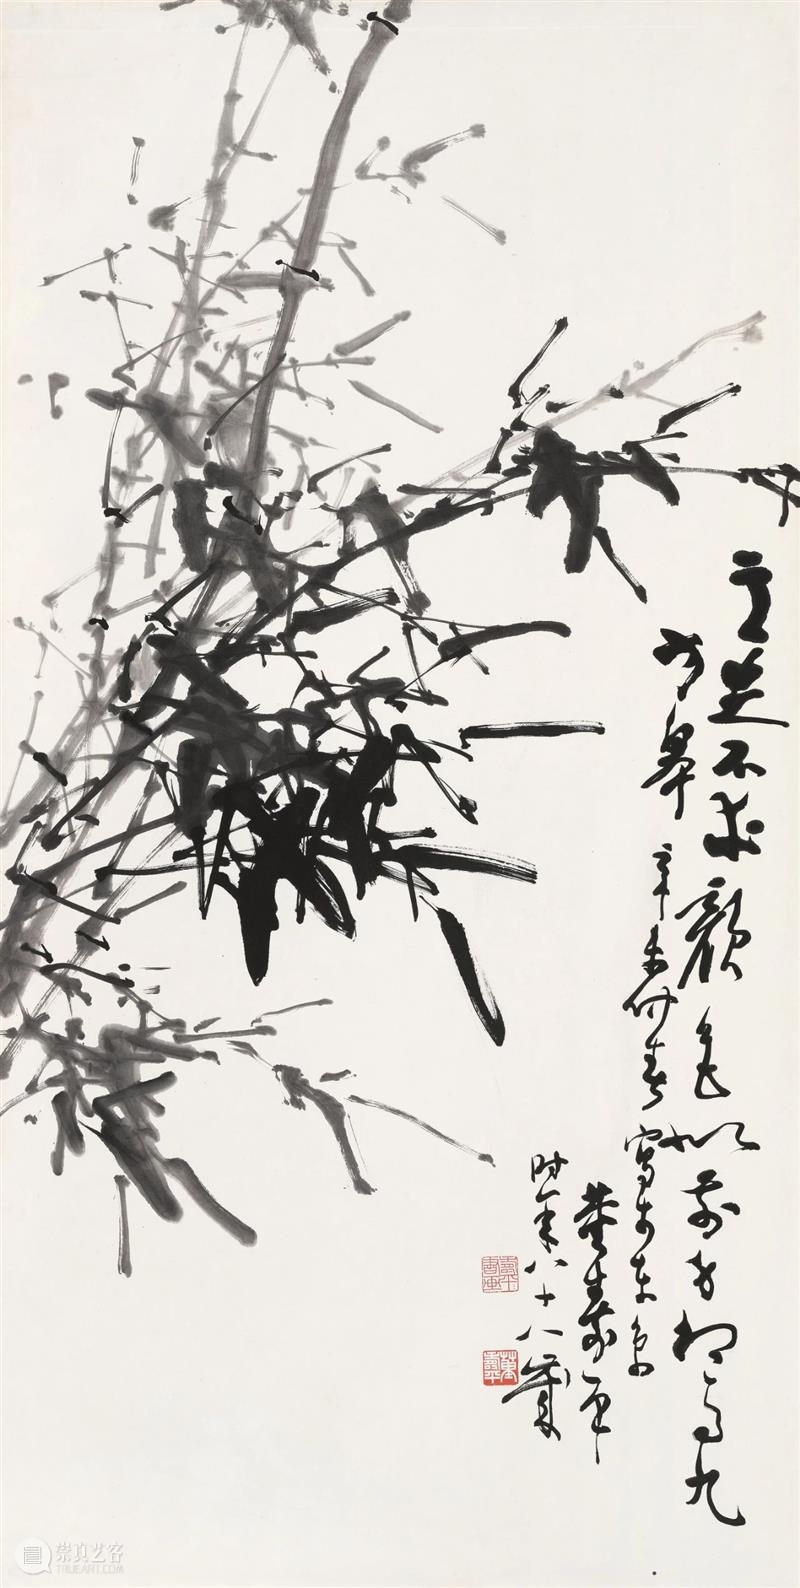 意足不求顏色似前身相馬九
方皋 辛未仲春寫於東京
董壽平
時年八十八歲
崇真艺客
TRUEART.COM